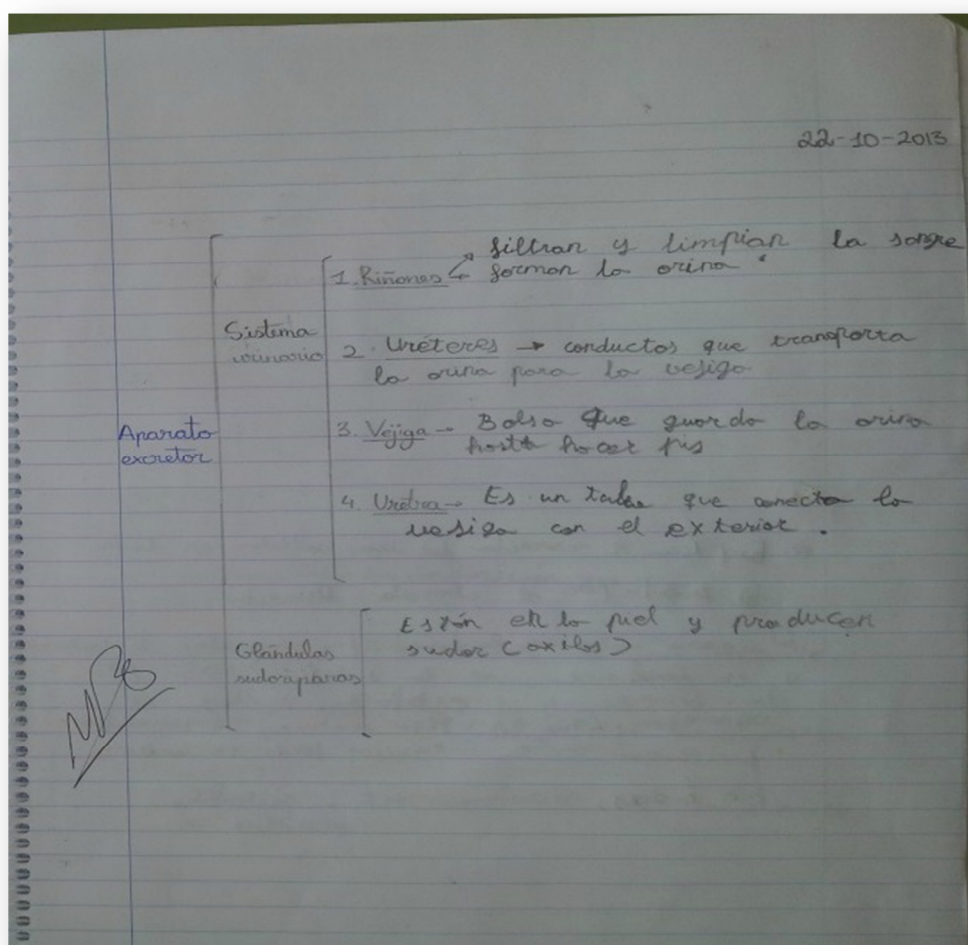 22-10-2013
Aparato
excretor
Sistema
urinario
1. Riñones
filtran y limpian la sangre
forman la orina
2. Uréteres → conductos que transporta
la orina para la vesiga
3. Vejiga → Bolsa que guarda la orina
hasta hacer pis
4. Uretra → Es un tubo que conecta la
vesiga con el exterior.
Glándulas
sudoríparas
Están en la piel y producen
sudor (axilas)